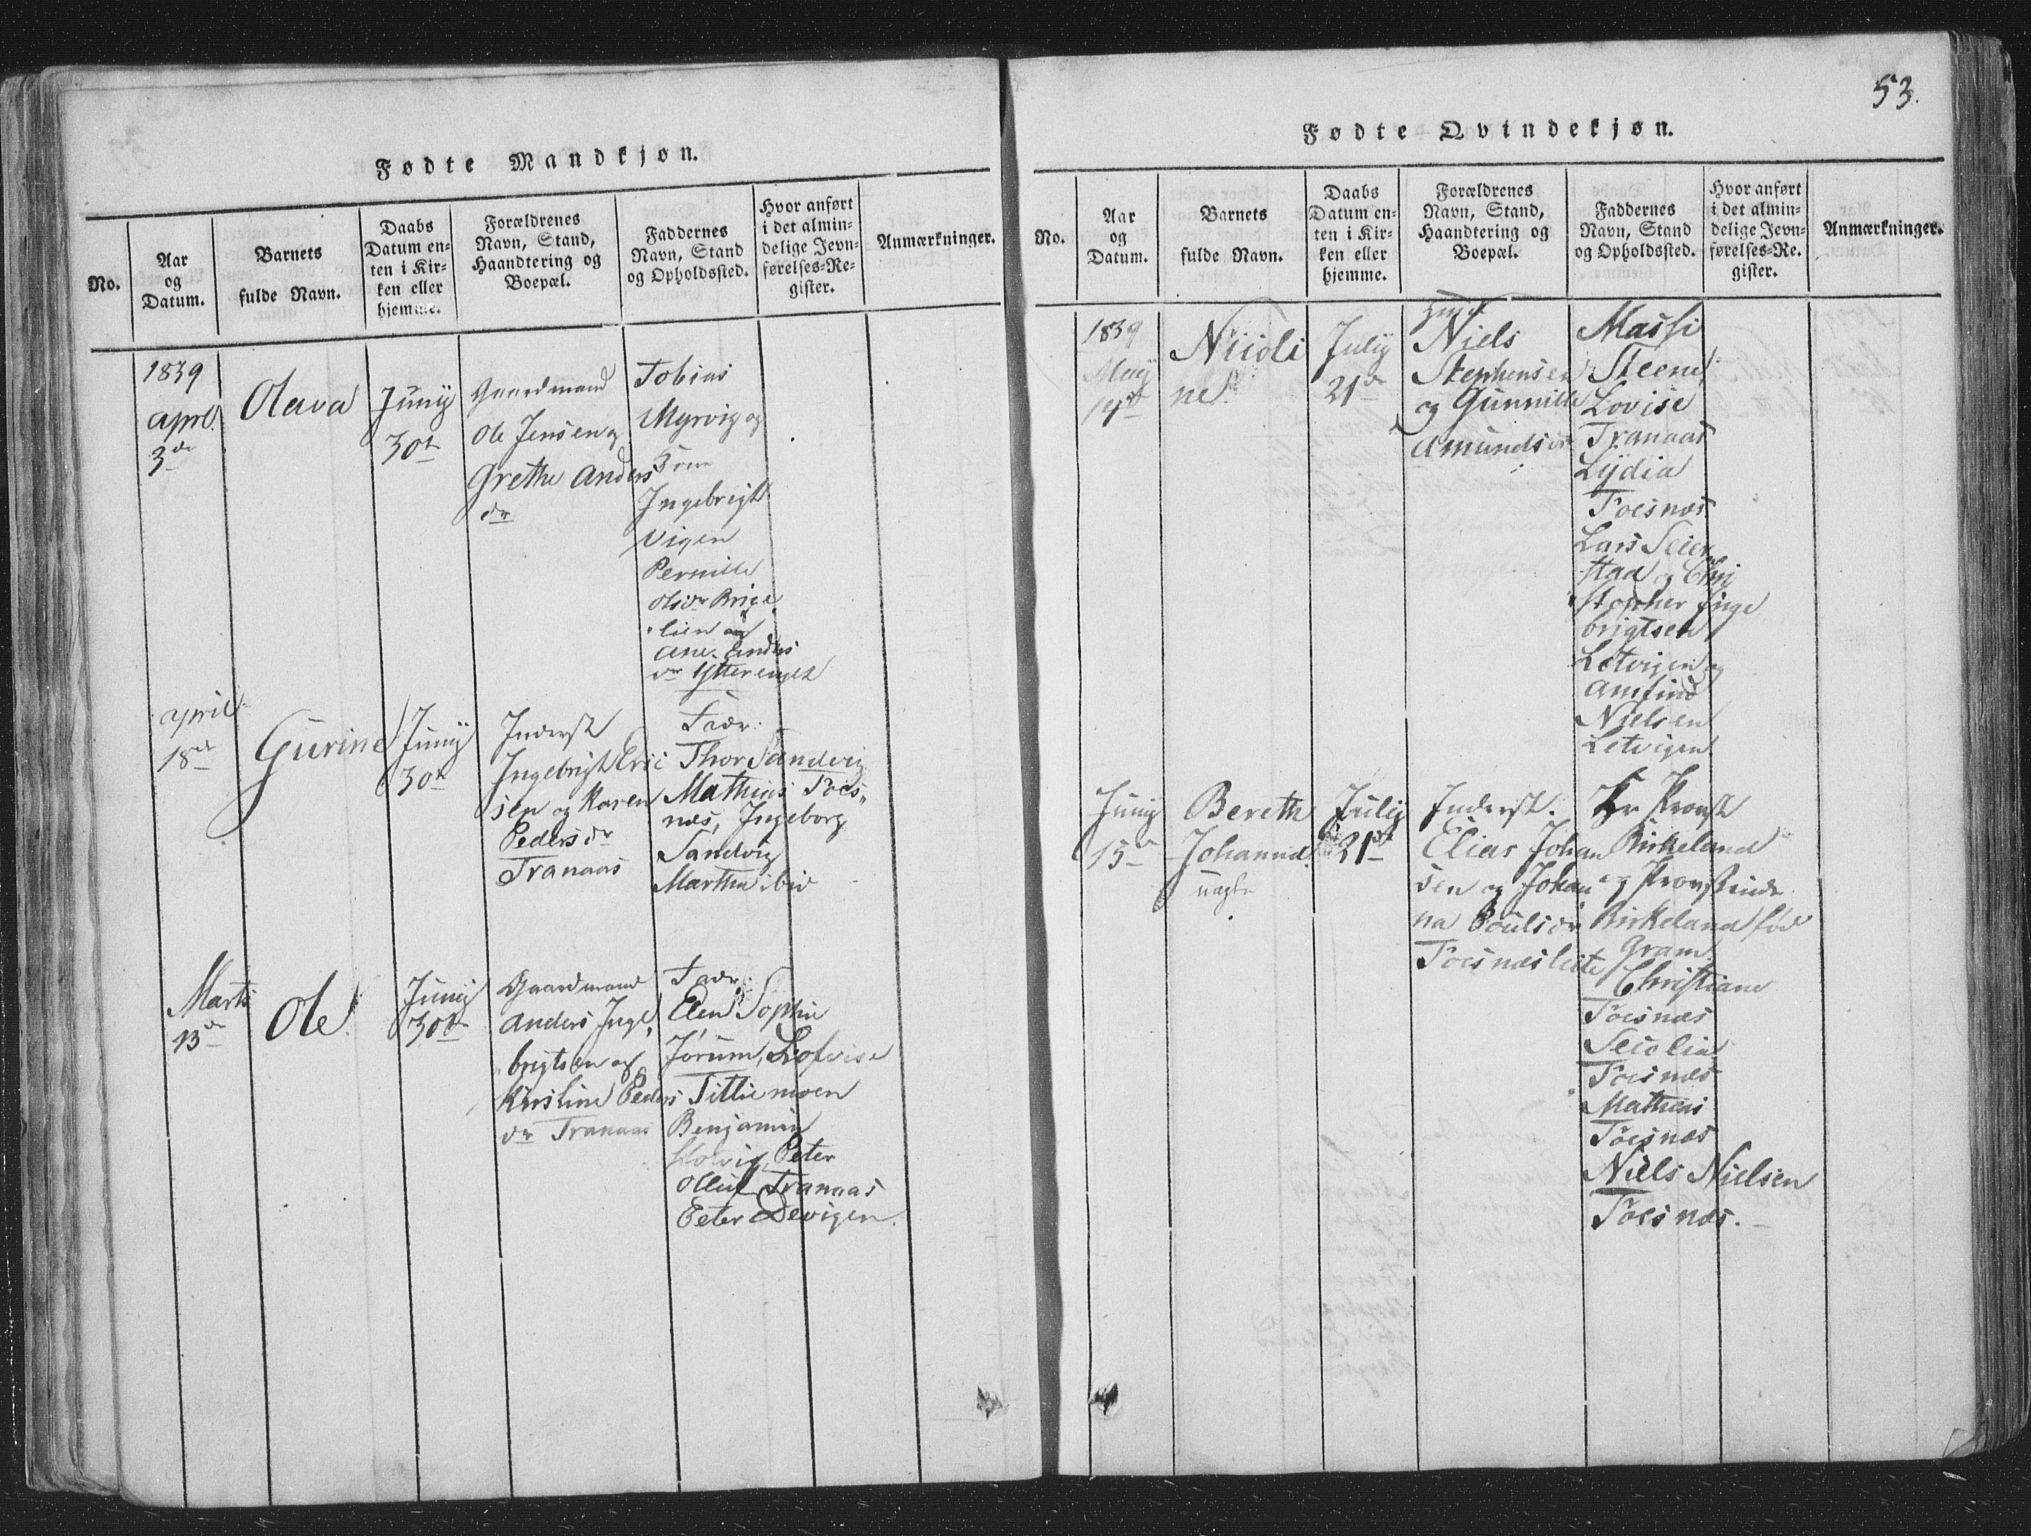 Fødte Mandkjøn.
No.
Aar
og
Datum.
Barnets
fulde Navn.
Daabs
Datum en-
ten i Kir-
ken eller
hjemme.
Forældrenes
Navn, Stand,
Haandtering og
Boepæl.
Faddernes
Navn, Stand
og Opholdssted.
Hvor anført
i det almin-
delige Jevn-
førelses-Re-
gister.
Anmærkninger.
1839
April
3de
Olava
Juny
30t
Gaardmand
Ole Jensen og
Grethe Anders
dr
Tobias
Myrvig og
Ingebrigt
Vigen
Pernille
Olsdr
lien og
Ane Anders
dr Ytterenget
April
18de
Gurine
Juny
30t
Inderst
Ingebrigt Eric
sen og Karen
Pedersdr
Tranaas
Fadr:
Thor Sandvig
Mathias Foes-
næs, Ingeborg
Sandvig
Martha ibid
Marts
13de
Ole
Juny
30t
Gaardmand
Anders Inge
brigtsen og
Kirstine Peders
dr Tranaas
Fadr:
Elen Sophie
Jørum, Lovise
Tittiemoen
Benjamin
Holvig, Peter
Tranaas
Peter Devigen.
53.
Fødte Qvindekjøn.
No.
Aar
og
Datum.
Barnets
fulde Navn.
Daabs
Datum en-
ten i Kir-
ken eller
hjemme.
Forældrenes
Navn, Stand,
Haandtering og
Boepæl.
Faddernes
Navn, Stand
og Opholdssted.
Hvor anført
i det almin-
delige Jevn-
førelses-Re-
gister.
Anmærkninger.
1839
May
Nicoli
ne
July
21de
Niels
Stephensen
og Gunnille
Amundsdr
Massi
Steene
Lovise
Tranaas
Lydia
Foesnæs
Lars Seier
stad og Chri
stopher Inge
brigtsen
Letvigen og
Amfind
Nielsen
Letvigen
Juny
15de
Bereth
Johanna
uægte
July
21de
Inderst.
Elias Johan
sen og Johan
na Poulsdr
Foesnæsleite
Hr Provst
Birkeland
og Provstinde
Birkeland fød
Gram
Christiane
Foesnæs
Foesnæs
Mathias
Foesnæs
Niels Nielsen
Foesnæs.